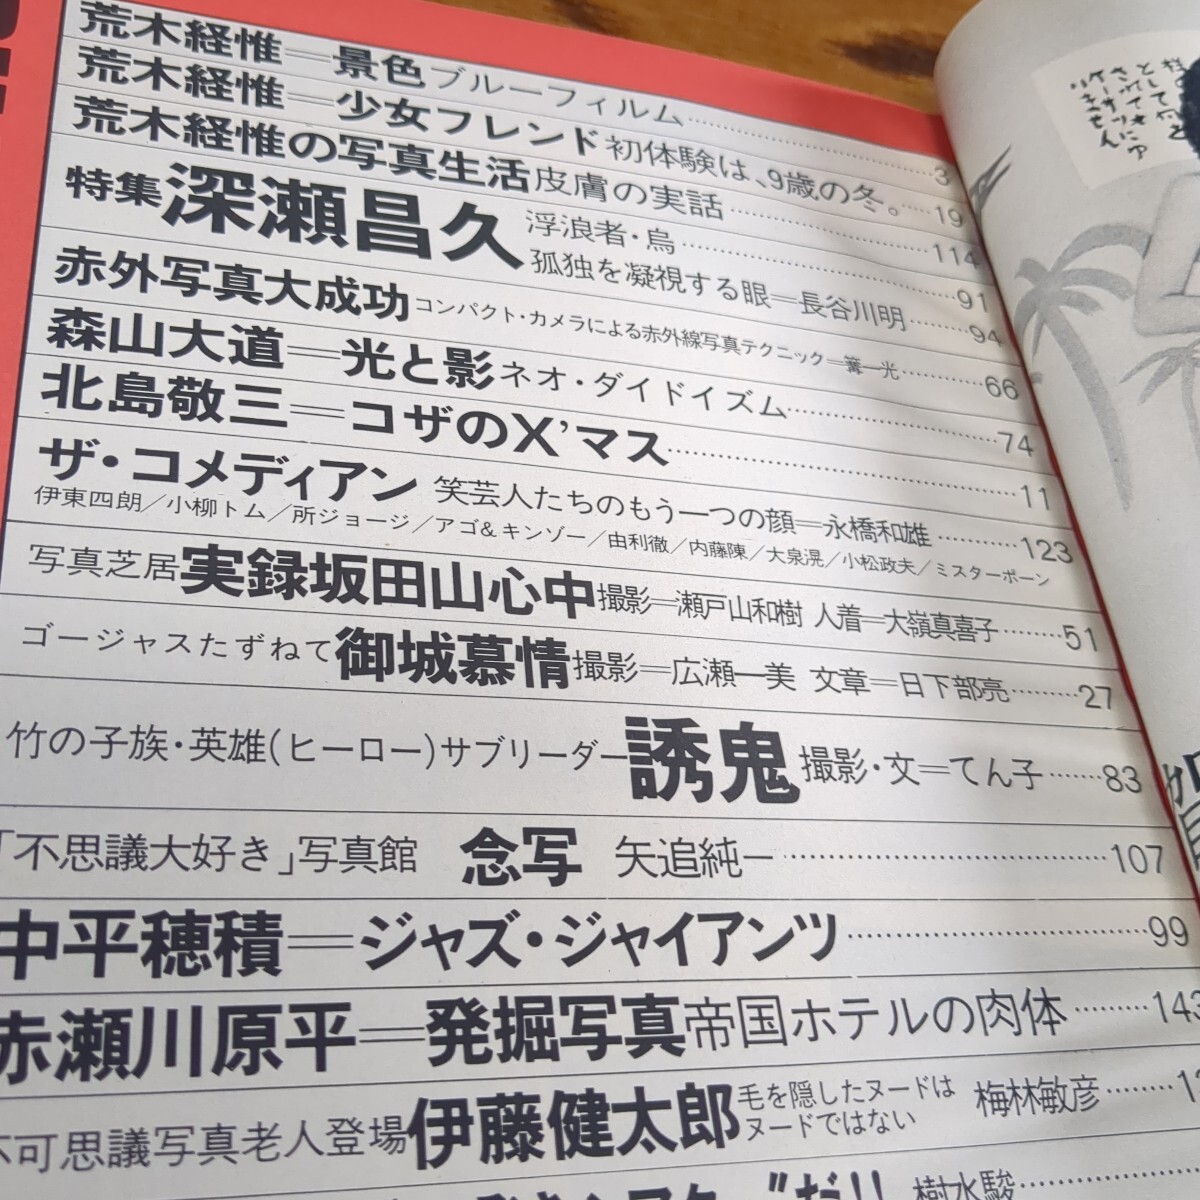 荒木経惟＝景色ブルーフィルム……3
荒木経惟＝少女フレンド 初体験は、9歳の冬。……19
荒木経惟の写真生活 皮膚の実話……114
特集 深瀬昌久 浮浪者・烏……91
孤独を凝視する眼＝長谷川明……94
赤外写真大成功 コンパクト・カメラによる赤外線写真テクニック＝篝一光……66
森山大道＝光と影 ネオ・ダイドイズム……74
北島敬三＝コザのX'マス……11
ザ・コメディアン 笑芸人たちのもう一つの顔＝永橋和雄……123
伊東四朗／小柳トム／所ジョージ／アゴ&キンゾー／由利徹／内藤陳／大泉滉／小松政夫／ミスターボーン
写真芝居 実録坂田山心中 撮影＝瀬戸山和樹 人着＝大嶺真喜子……51
ゴージャスたずねて 御城慕情 撮影＝広瀬一美 文章＝日下部亮……27
竹の子族・英雄(ヒーロー)サブリーダー 誘鬼 撮影・文＝てん子……83
「不思議大好き」写真館 念写 矢追純一……107
中平穂積＝ジャズ・ジャイアンツ……99
赤瀬川原平＝発掘写真 帝国ホテルの肉体……143
不可思議写真老人登場 伊藤健太郎 毛を隠したヌードは
ヌードではない 梅林敏彦……